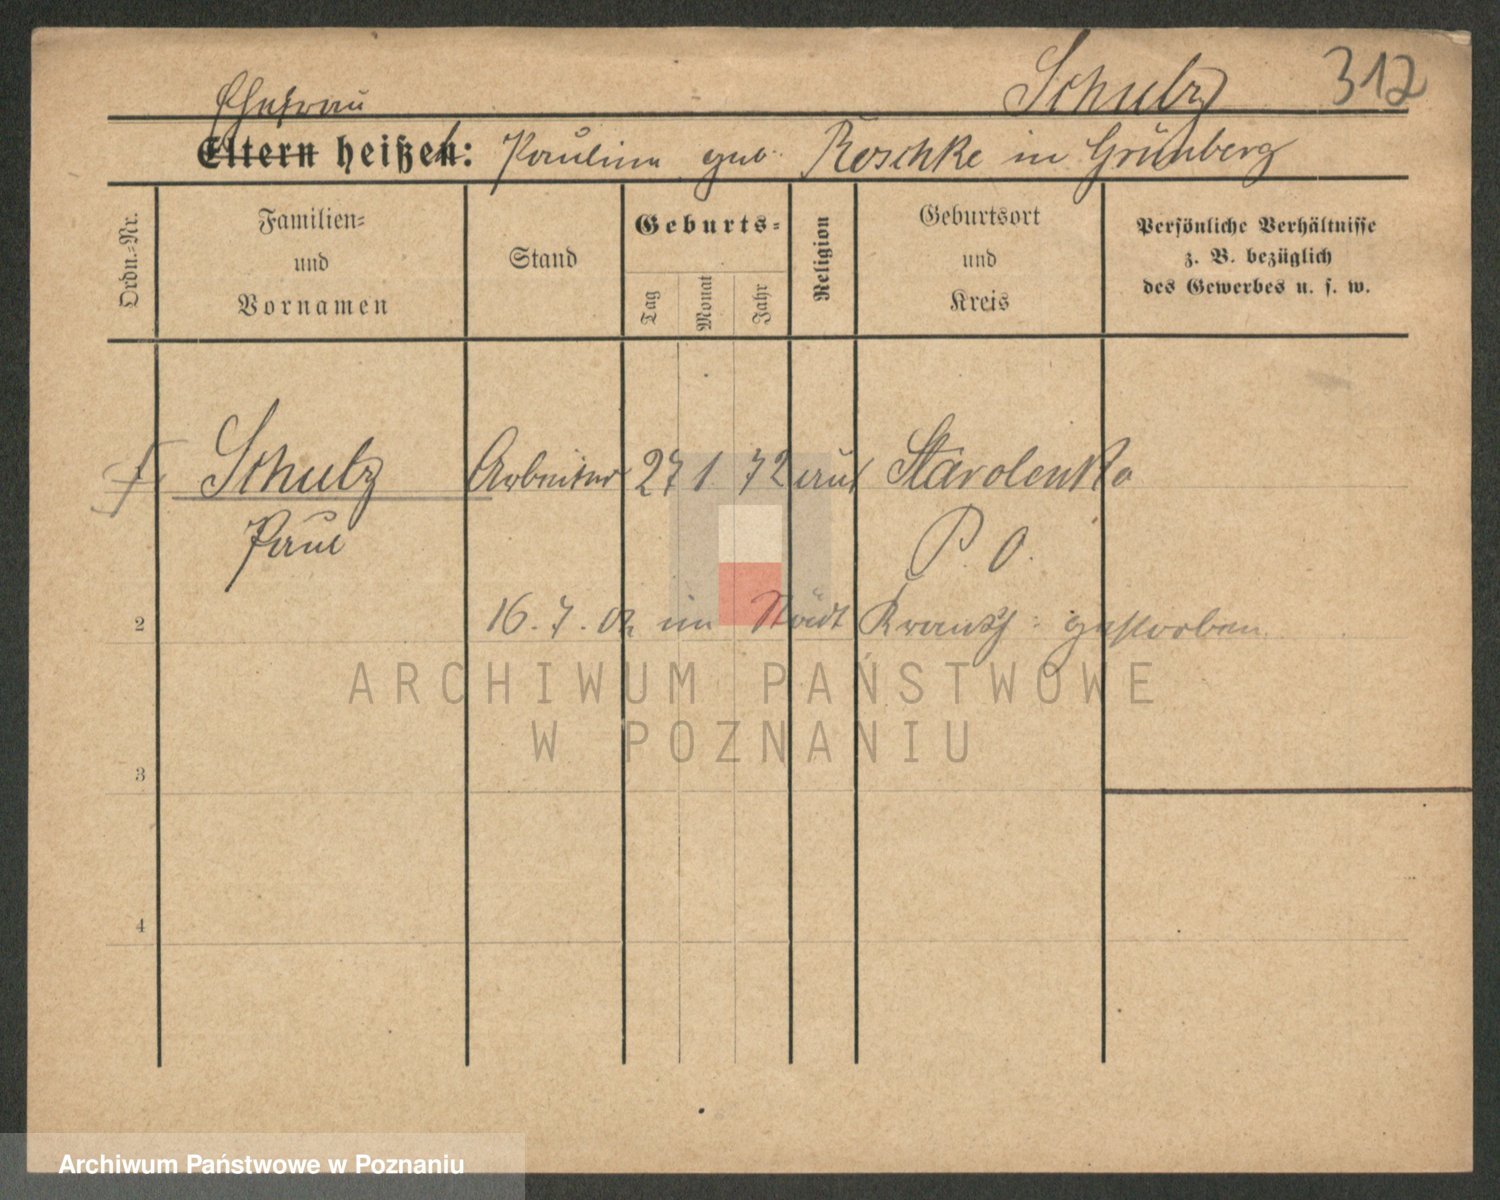 Schulz 312
Ehefrau
Eltern heißen: Pauline geb. Reschke in Grünberg
Ordn.=Nr.
Familien=
und
Vornamen
Stand
Geburts=
Tag
Monat
Jahr
Religion
Geburtsort
und
Kreis
Persönliche Verhältnisse
z. B. bezüglich
des Gewerbes u. s. w.
Schulz Arbeiter 27 1 72 Starolenka
Paul P. O.
2 16. 7. 02 im Städt Krankh: gestorben.
3
4
ARCHIWUM PAŃSTWOWE
W POZNANIU
Archiwum Państwowe w Poznaniu